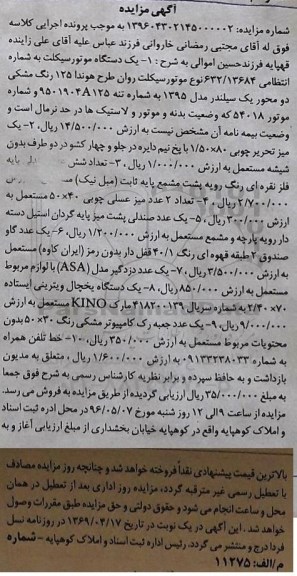 آگهی مزایده
شماره مزایده: ۱۳۹۶۰۴۳۰۲۱۴۵۰۰۰۰۰۲ به موجب پرونده اجرایی کلاسه
فوق له آقای مجتبی رمضانی خاروانی فرزند عباس علیه آقای علی زاینده
قهپایه فرزندحسین اموالی به شرح : ۱- یک دستگاه موتورسیکلت به شماره
انتظامی ۶۳۲/۱۳۶۸۴نوع موتورسیکلت روان طرح هوندا ۱۲۵ رنگ مشکی
دو محور یک سیلندر مدل ۱۳۹۵ به شماره تنه ۹۵۰۱۹۰۴A۱۲۵ و شماره
موتور ۵۴۰۱۸ که وضعیت بدنه و موتور و لاستیک ها در حد نرمال است و
وضعیت بیمه نامه آن مشخص نیست به ارزش ۱۴/۵۰۰/۰۰۰ ریال، ۲- یک
میز تحریر چوبی ۸۰×۱/۵۰ با پخ نیم دایره در جلو و چهار کشو در دو طرف بدون
شیشه مستعمل به ارزش ۱/۰۰۰/۰۰۰ ریال، ۳- تعداد شش دار پایه
فلز نقره ای رنگ رویه پشت مشمع پایه ثابت (مبل نیک)
۲/۷۰۰/۰۰۰ ریال، ۴- تعداد ۲ عدد میز عسلی چوبی ۴۰×۵۰ مستعمل به
ارزش ۳۰۰/۰۰۰ ریال، ۵- یک عدد صندلی پشت میز پایه گردان استیل دسته
دار رویه پارچه و مشمع مستعمل به ارزش ۱/۲۰۰/۰۰۰ ریال،۶- یک عدد گاو
صندوق ۲ طبقه قهوه ای رنگ ۴۰/۱ قفل دار بدون رمز (ایران کاوه) مستعمل
به ارزش ۳/۵۰۰/۰۰۰ ریال،۷- یک عدد دزدگیر مدل (ASA) با لوازم مربوط
مستعمل به ارزش ۸۵۰/۰۰۰ ریال، ۸- یک دستگاه یخچال ویترینی ایستاده
۷۰×۲/۴۰ به شماره سریال ۴۱۸۲۰۰۱۳۹ مارک KINO مستعمل به ارزش
۹/۰۰۰/۰۰۰ ریال، ۹- یک عدد جعبه رک کامپیوتر مشکی رنگ ۳۰×۵۰ بدون
محتویات مربوط مستعمل به ارزش ۳۵۰/۰۰۰ ریال، ۱۰- خط تلفن همراه
به شماره ۰۹۱۳۳۲۳۸۰۳۳ به ارزش ۱/۶۰۰/۰۰۰ ریال ، متعلق به مدیون
بازداشت و به حافظ سپرده و برابر نظریه کارشناس رسمی به شرح فوق جمعا
به مبلغ ۳۵/۰۰۰/۰۰۰ ریال ارزیابی گردیده از طریق مزایده به فروش می رسد.
مزایده از ساعت ۹ الی ۱۲ روز شنبه مورخ ۹۶/۰۵/۰۷ در محل اداره ثبت اسناد
و املاک کوهپایه واقع در کوهپایه خیابان بخشداری از مبلغ ارزیابی آغاز و به
بالاترین قیمت پیشنهادی نقداً فروخته خواهد شد و چنانچه روز مزایده مصادف
با تعطیل رسمی غیر مترقبه گردد، مزایده روز اداری بعد از تعطیل در همان
محل و ساعت انجام می شود و حقوق دولتی و حق مزایده طبق مقررات وصول
خواهد شد . این آگهی در یک نوبت در تاریخ ۱۳۶۹/۰۴/۱۷ در روزنامه نسل
فردا درج و منتشر می گردد. رئیس اداره ثبت اسناد و املاک کوهپایه - شماره
م/الف: ۱۱۲۷۵